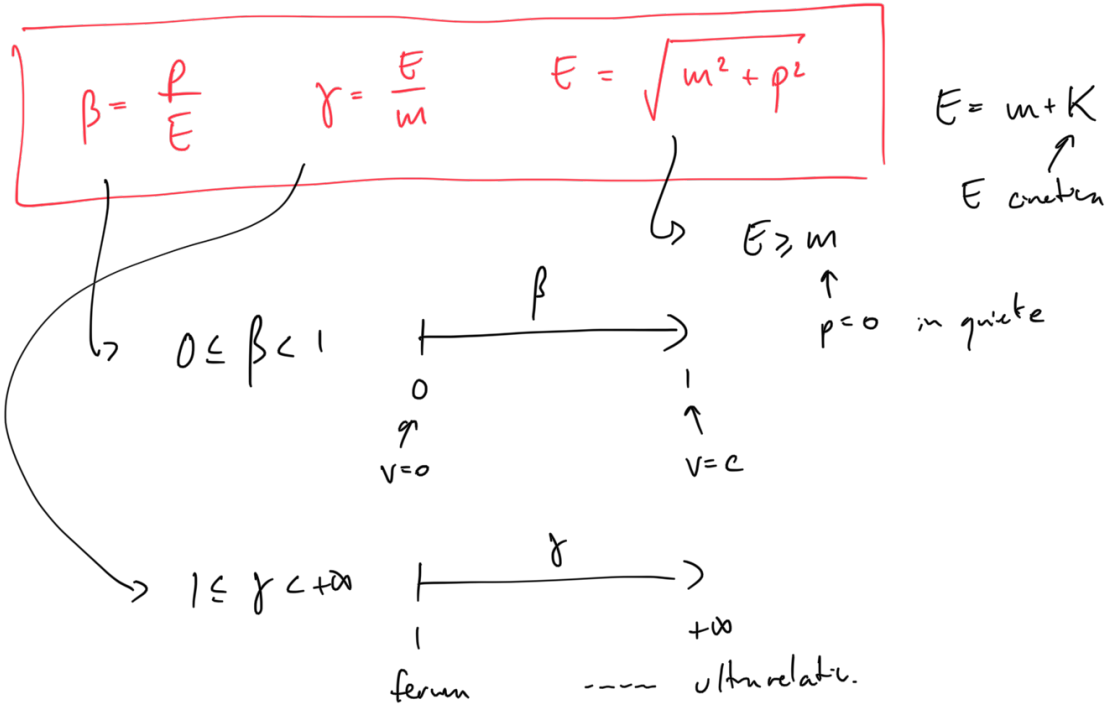 β = p/E γ = E/m E = √(m² + p²)
E = m + K
E cinetica
E ≥ m
p = 0 in quiete
0 ≤ β < 1
β
0 1
v = 0 v = c
1 ≤ γ < +∞
γ
1 +∞
ferma ---- ultrarelativ.